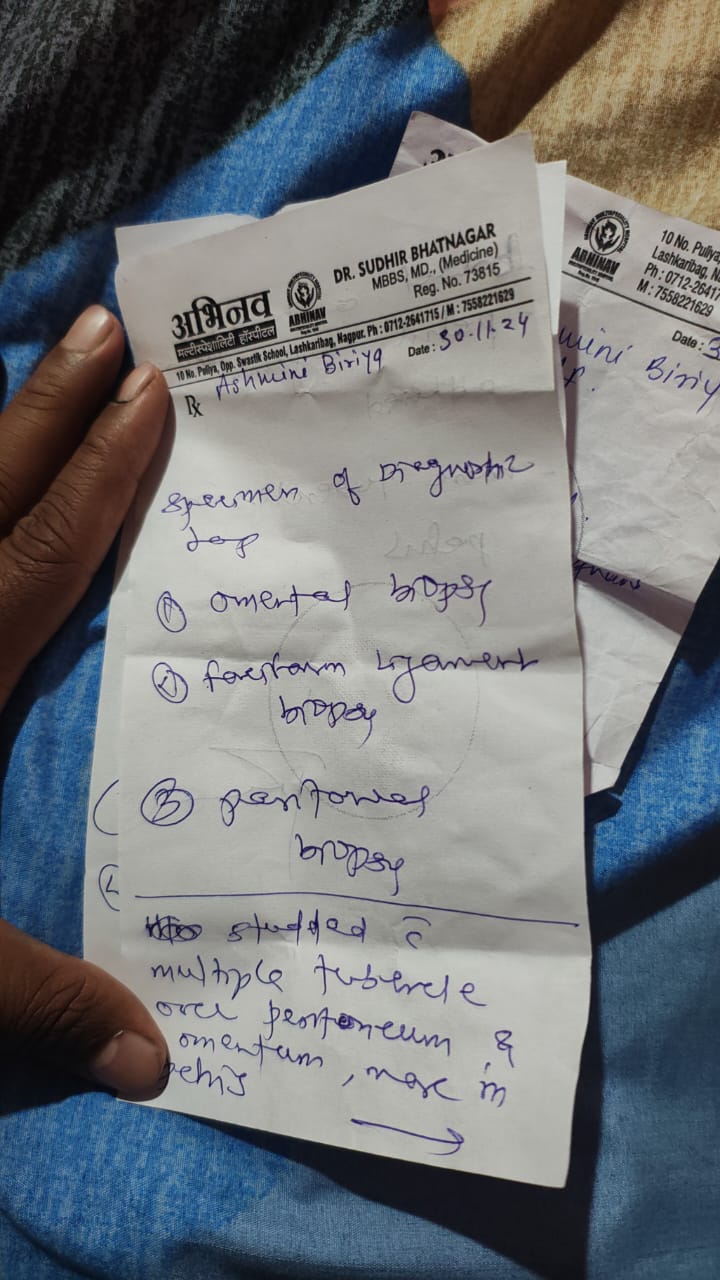 अभिनव
मल्टीस्पेशालिटी हॉस्पीटल
ABHINAV
DR. SUDHIR BHATNAGAR
MBBS, MD., (Medicine)
Reg. No. 73815
10 No. Puliya, Opp. Swastik School, Lashkaribag, Nagpur. Ph : 0712-2641715 / M : 7558221629
Ashwini Biriya Date : 30-11-24
Rx
specimen of Diagnostic
Lap
① omental biopsy
② falciform ligament
biopsy
③ peritoneal
biopsy
studded c̄
multiple tubercle
over peritoneum &
omentum, more in
pelvis
→
ABHINAV
10 No. Puliya,
Lashkaribag, N
Ph : 0712-26417
M : 7558221629
Date : 3
wini Biriy